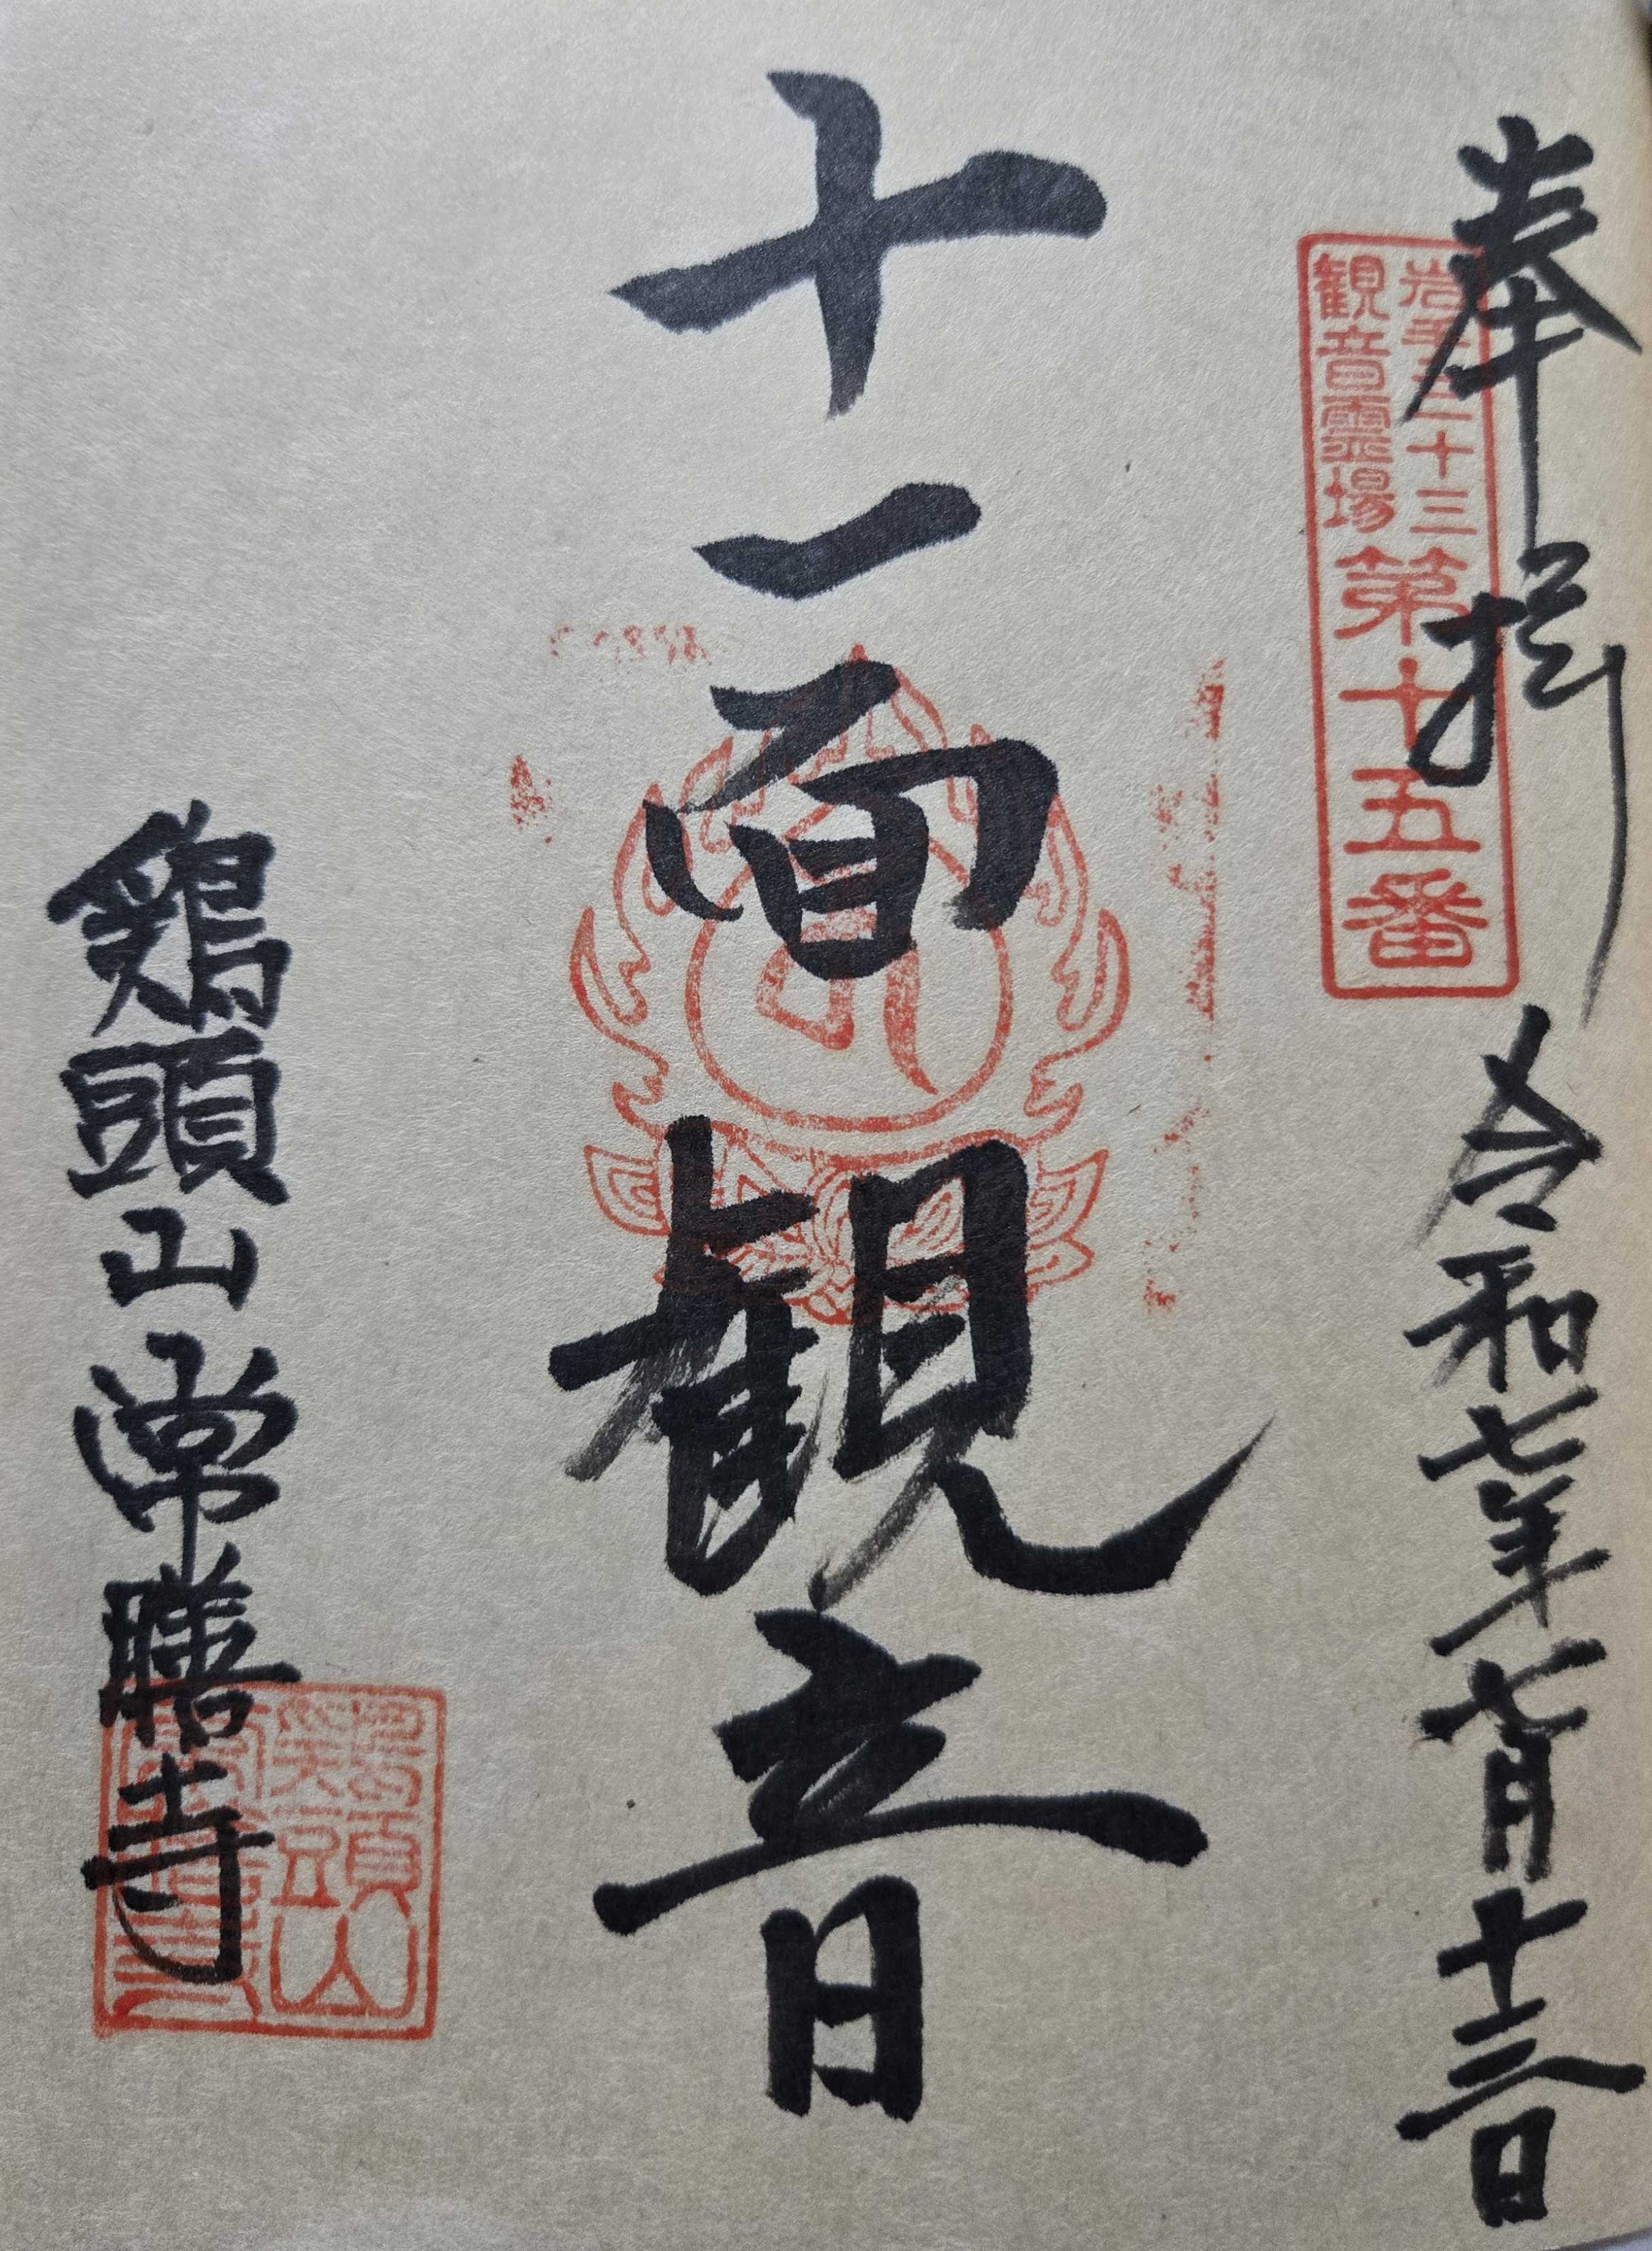 奉拝
岩手三十三
観音霊場
第十五番
令和七年七月十三日
十一面観音
鶏頭山常膳寺